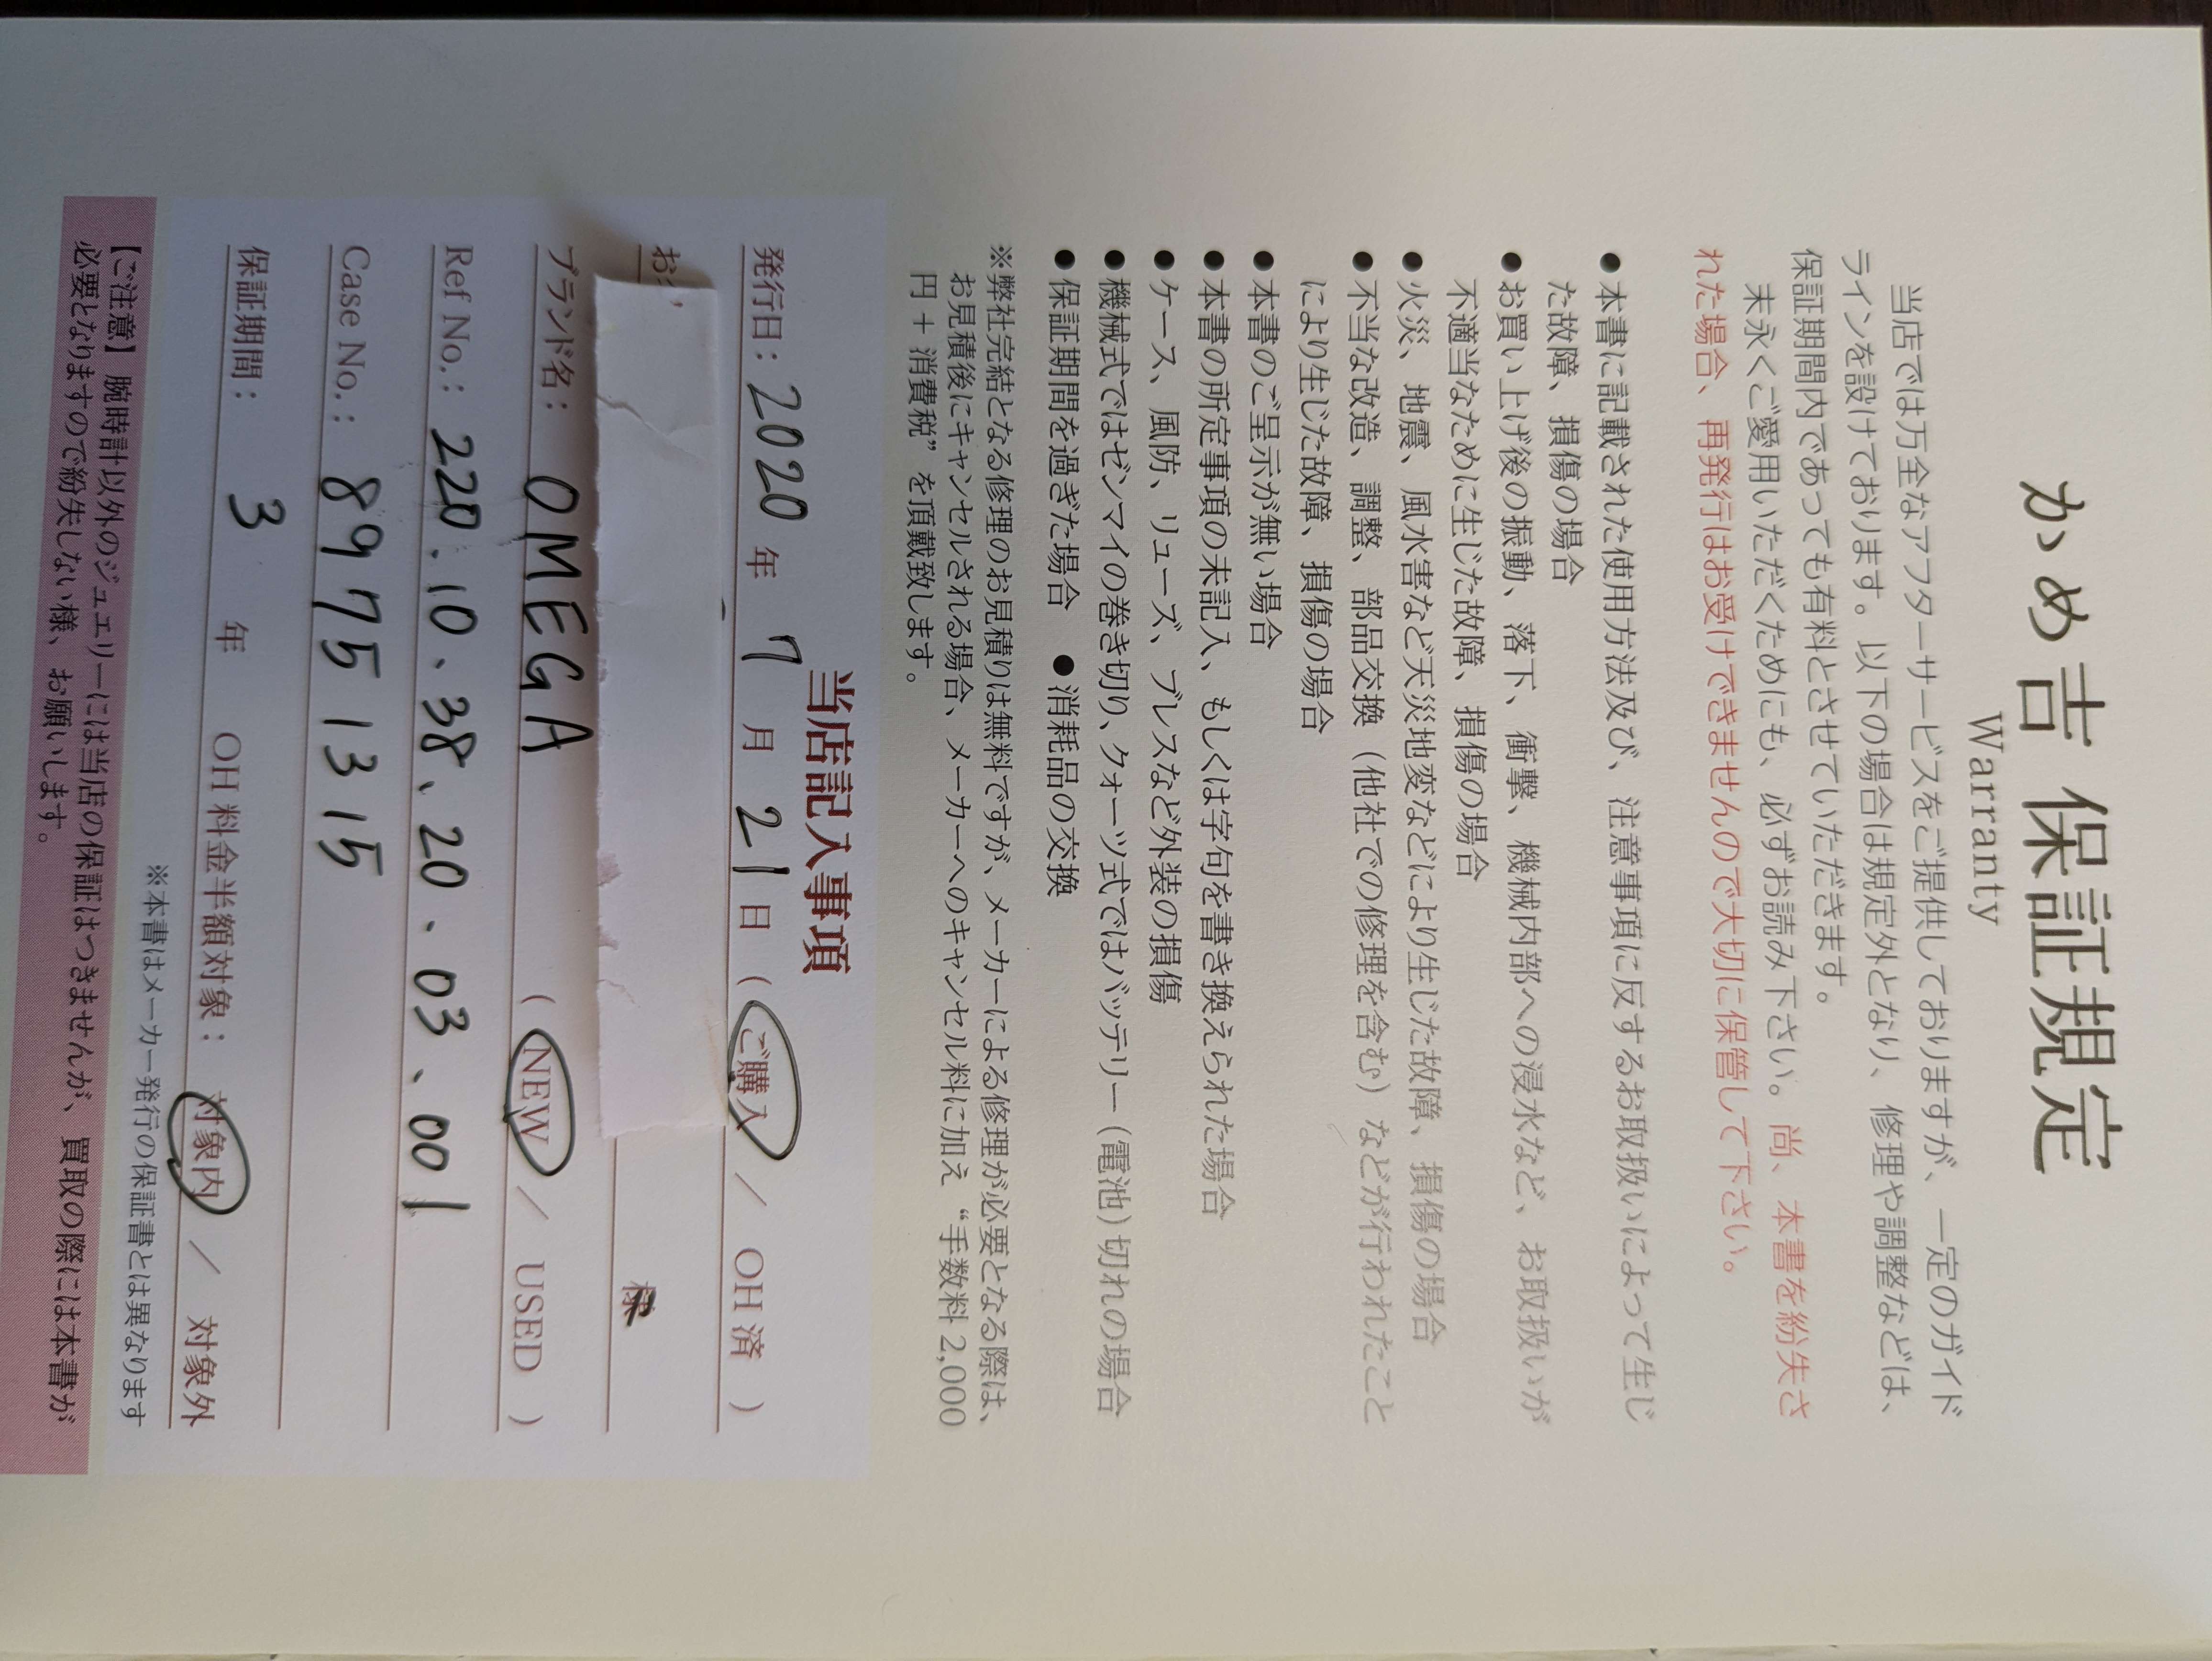 かめ吉 保証規定
Warranty
当店では万全なアフターサービスをご提供しておりますが、一定のガイド
ラインを設けております。以下の場合は規定外となり、修理や調整などは、
保証期間内であっても有料とさせていただきます。
末永くご愛用いただくためにも、必ずお読み下さい。尚、本書を紛失さ
れた場合、再発行はお受けできませんので大切に保管して下さい。
●本書に記載された使用方法及び、注意事項に反するお取扱いによって生じ
た故障、損傷の場合
●お買い上げ後の振動、落下、衝撃、機械内部への浸水など、お取扱いが
不適当なために生じた故障、損傷の場合
●火災、地震、風水害など天災地変などにより生じた故障、損傷の場合
●不当な改造、調整、部品交換（他社での修理を含む）などが行われたこと
により生じた故障、損傷の場合
●本書のご呈示が無い場合
●本書の所定事項の未記入、もしくは字句を書き換えられた場合
●ケース、風防、リューズ、ブレスなど外装の損傷
●機械式ではゼンマイの巻き切り、クォーツ式ではバッテリー（電池）切れの場合
●保証期間を過ぎた場合 ●消耗品の交換
※弊社完結となる修理のお見積りは無料ですが、メーカーによる修理が必要となる際は、
お見積後にキャンセルされる場合、メーカーへのキャンセル料に加え “手数料 2,000
円 + 消費税” を頂戴致します。
当店記入事項
発行日： 2020 年 7 月 21 日 （ ご購入 / OH 済 ）
様
ブランド名： OMEGA （ NEW / USED ）
Ref No.： 220.10.38.20.03.001
Case No.： 89751315
保証期間： 3 年 OH 料金半額対象： 対象内 / 対象外
※本書はメーカー発行の保証書とは異なります
【ご注意】腕時計以外のジュエリーには当店の保証はつきませんが、買取の際には本書が
必要となりますので紛失しない様、お願いします。